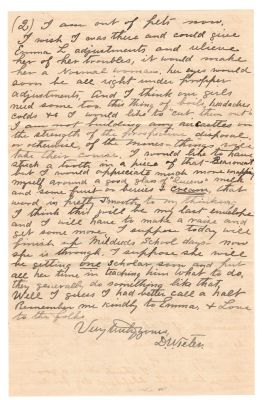 (2) I am out of
I wish I was there and could give
Emma L adjustments and relieve
her of her troubles, it would make
her a Normal woman, her eyes would
soon be all right under proper
adjustments, And I think our girls
need some too this thing of boils, headaches
colds & I would like to "cut them out"
I am not building any air castles on
the strength of the prospective disposal
or of the mines - things
take their course. I would like to have
stuck a tooth in a piece of that
but I would appreciate much more
myself around a good glass "Queen" milk
and some fruit or berries & cream, that
word is pretty smooth to my thinking
I think this will be my last envelope
and I will have to make a raise and
get some more. I suppose today will
finish up Mildreds School days - now
she is through. I suppose she will
be getting one Scholar soon and put
all her time in teaching him what to do,
they generally do something like that,
Well I guess I had better call a halt
Remember me kindly to Emma, & Love
to the folks
Very truly yours,